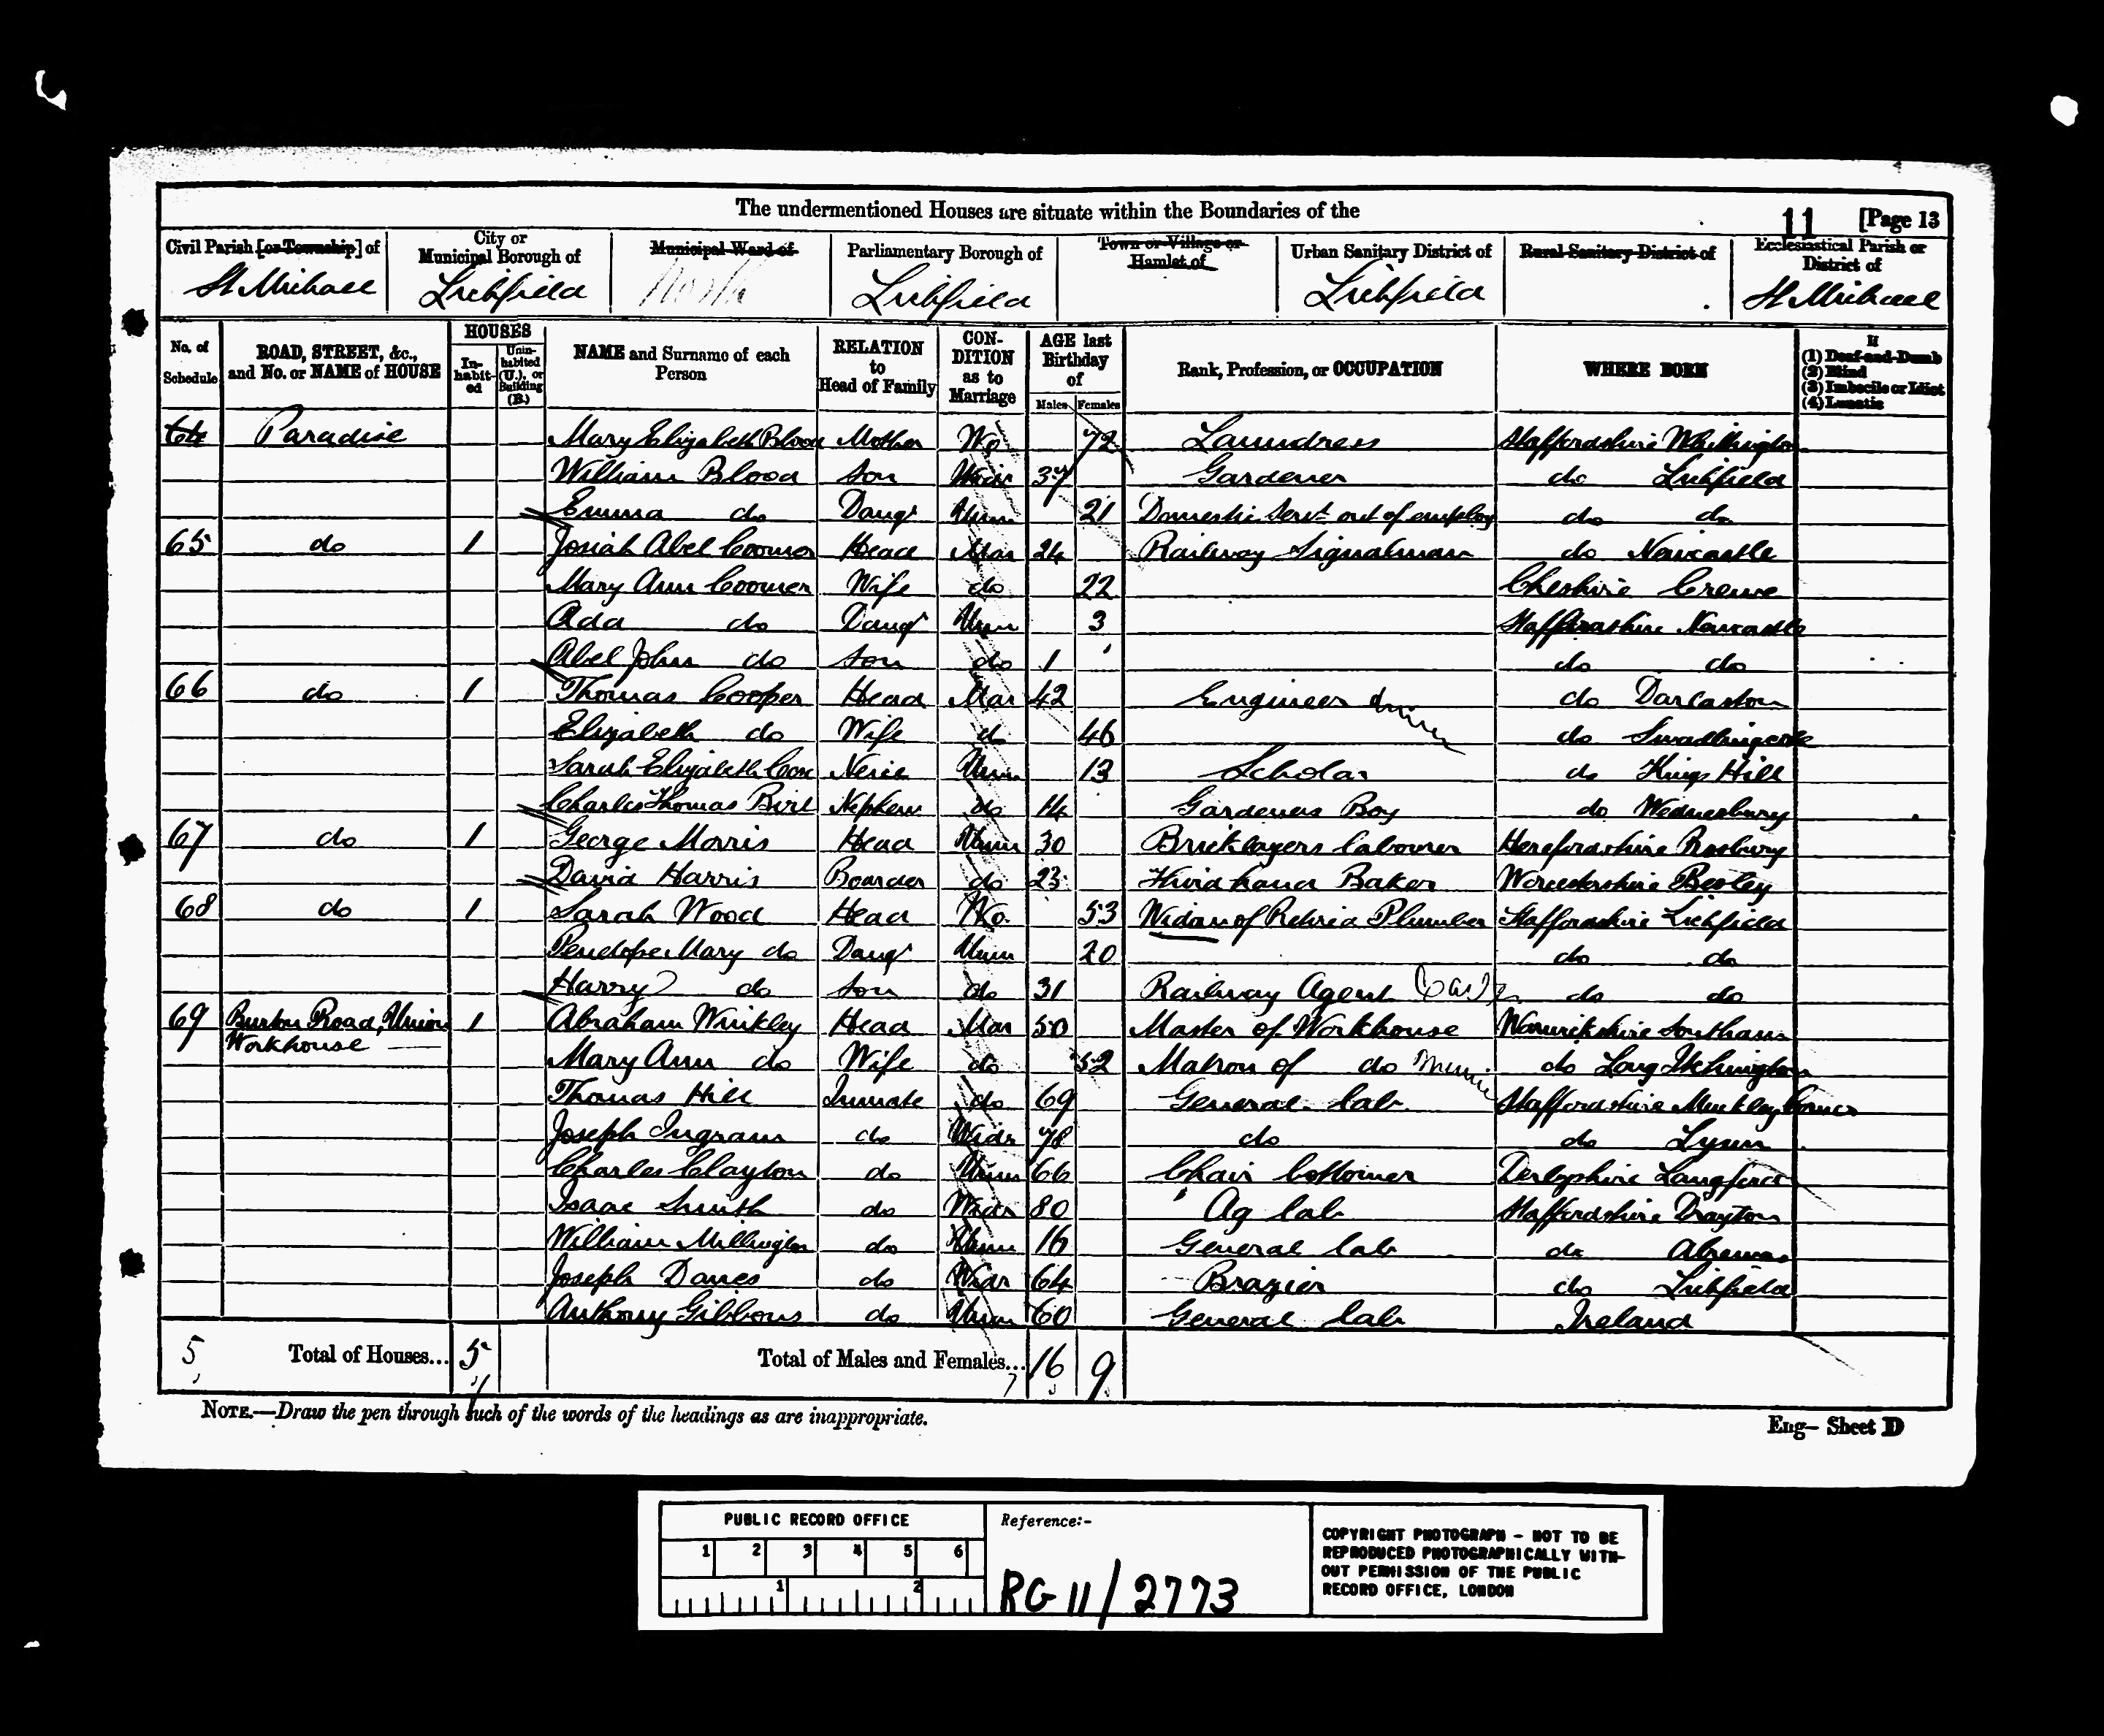 The undermentioned Houses are situate within the Boundaries of the
11 [Page 13
Civil Parish [or Township] of St Michael
City or Municipal Borough of Lichfield
Municipal Ward of North
Parliamentary Borough of Lichfield
Town or Village or Hamlet of
Urban Sanitary District of Lichfield
Rural Sanitary District of
Ecclesiastical Parish or District of St Michael
No. of Schedule ROAD, STREET, &c., and No. or NAME of HOUSE HOUSES Inhabited Uninhabited (U.), or Building (B.) NAME and Surname of each Person RELATION to Head of Family CONDITION as to Marriage AGE last Birthday of Males Females Rank, Profession, or OCCUPATION WHERE BORN If (1) Deaf-and-Dumb (2) Blind (3) Imbecile or Idiot (4) Lunatic
64 Paradise Mary Elizabeth Blood Mother Wo 72 Laundress Staffordshire Whittington
William Blood Son Widr 37 Gardener do Lichfield
Emma do Daugr Unm 21 Domestic Servt out of employ do do
65 do 1 Josiah Abel Coomer Head Mar 24 Railway Signalman do Newcastle
Mary Ann Coomer Wife do 22 Cheshire Crewe
Ada do Daugr Unm 3 Staffordshire Newcastle
Abel John do Son do 1 do do
66 do 1 Thomas Cooper Head Mar 42 Engineer do Darlaston
Elizabeth do Wife do 46 do Swadlingcote
Sarah Elizabeth Cox Neice Unm 13 Scholar do Kings Hill
Charles Thomas Nephew do 14 Gardeners Boy do Wednesbury
67 do 1 George Morris Head Unm 30 Bricklayers labourer Herefordshire
David Harris Boarder do 23 Third hand Baker Worcestershire
68 do 1 Sarah Wood Head Wo 53 Widow of Retired Plumber Staffordshire Lichfield
Penelope Mary do Daugr Unm 20 do do
Harry do Son do 31 Railway Agent do do
69 Burton Road, Union Workhouse 1 Abraham Winkley Head Mar 50 Master of Workhouse Warwickshire Southam
Mary Ann do Wife do 52 Matron of do do Long Itchington
Thomas Hill Inmate do 69 General lab Staffordshire Muckley Corner
Joseph Ingram do Widr 78 do do Lynn
Charles Clayton do Unm 66 Chair bottomer Derbyshire
Isaac Smith do Widr 80 Ag lab Staffordshire Drayton
William Millington do Unm 16 General lab do Alrewas
Joseph Davies do Widr 64 Brazier do Lichfield
Anthony Gibbons do Unm 60 General lab Ireland
5 Total of Houses... 5 Total of Males and Females... 16 9
NOTE.—Draw the pen through such of the words of the headings as are inappropriate.
Eng— Sheet D
PUBLIC RECORD OFFICE
1 2 3 4 5 6
1 2
Reference:-
RG 11/2773
COPYRIGHT PHOTOGRAPH - NOT TO BE
REPRODUCED PHOTOGRAPHICALLY WITH-
OUT PERMISSION OF THE PUBLIC
RECORD OFFICE, LONDON